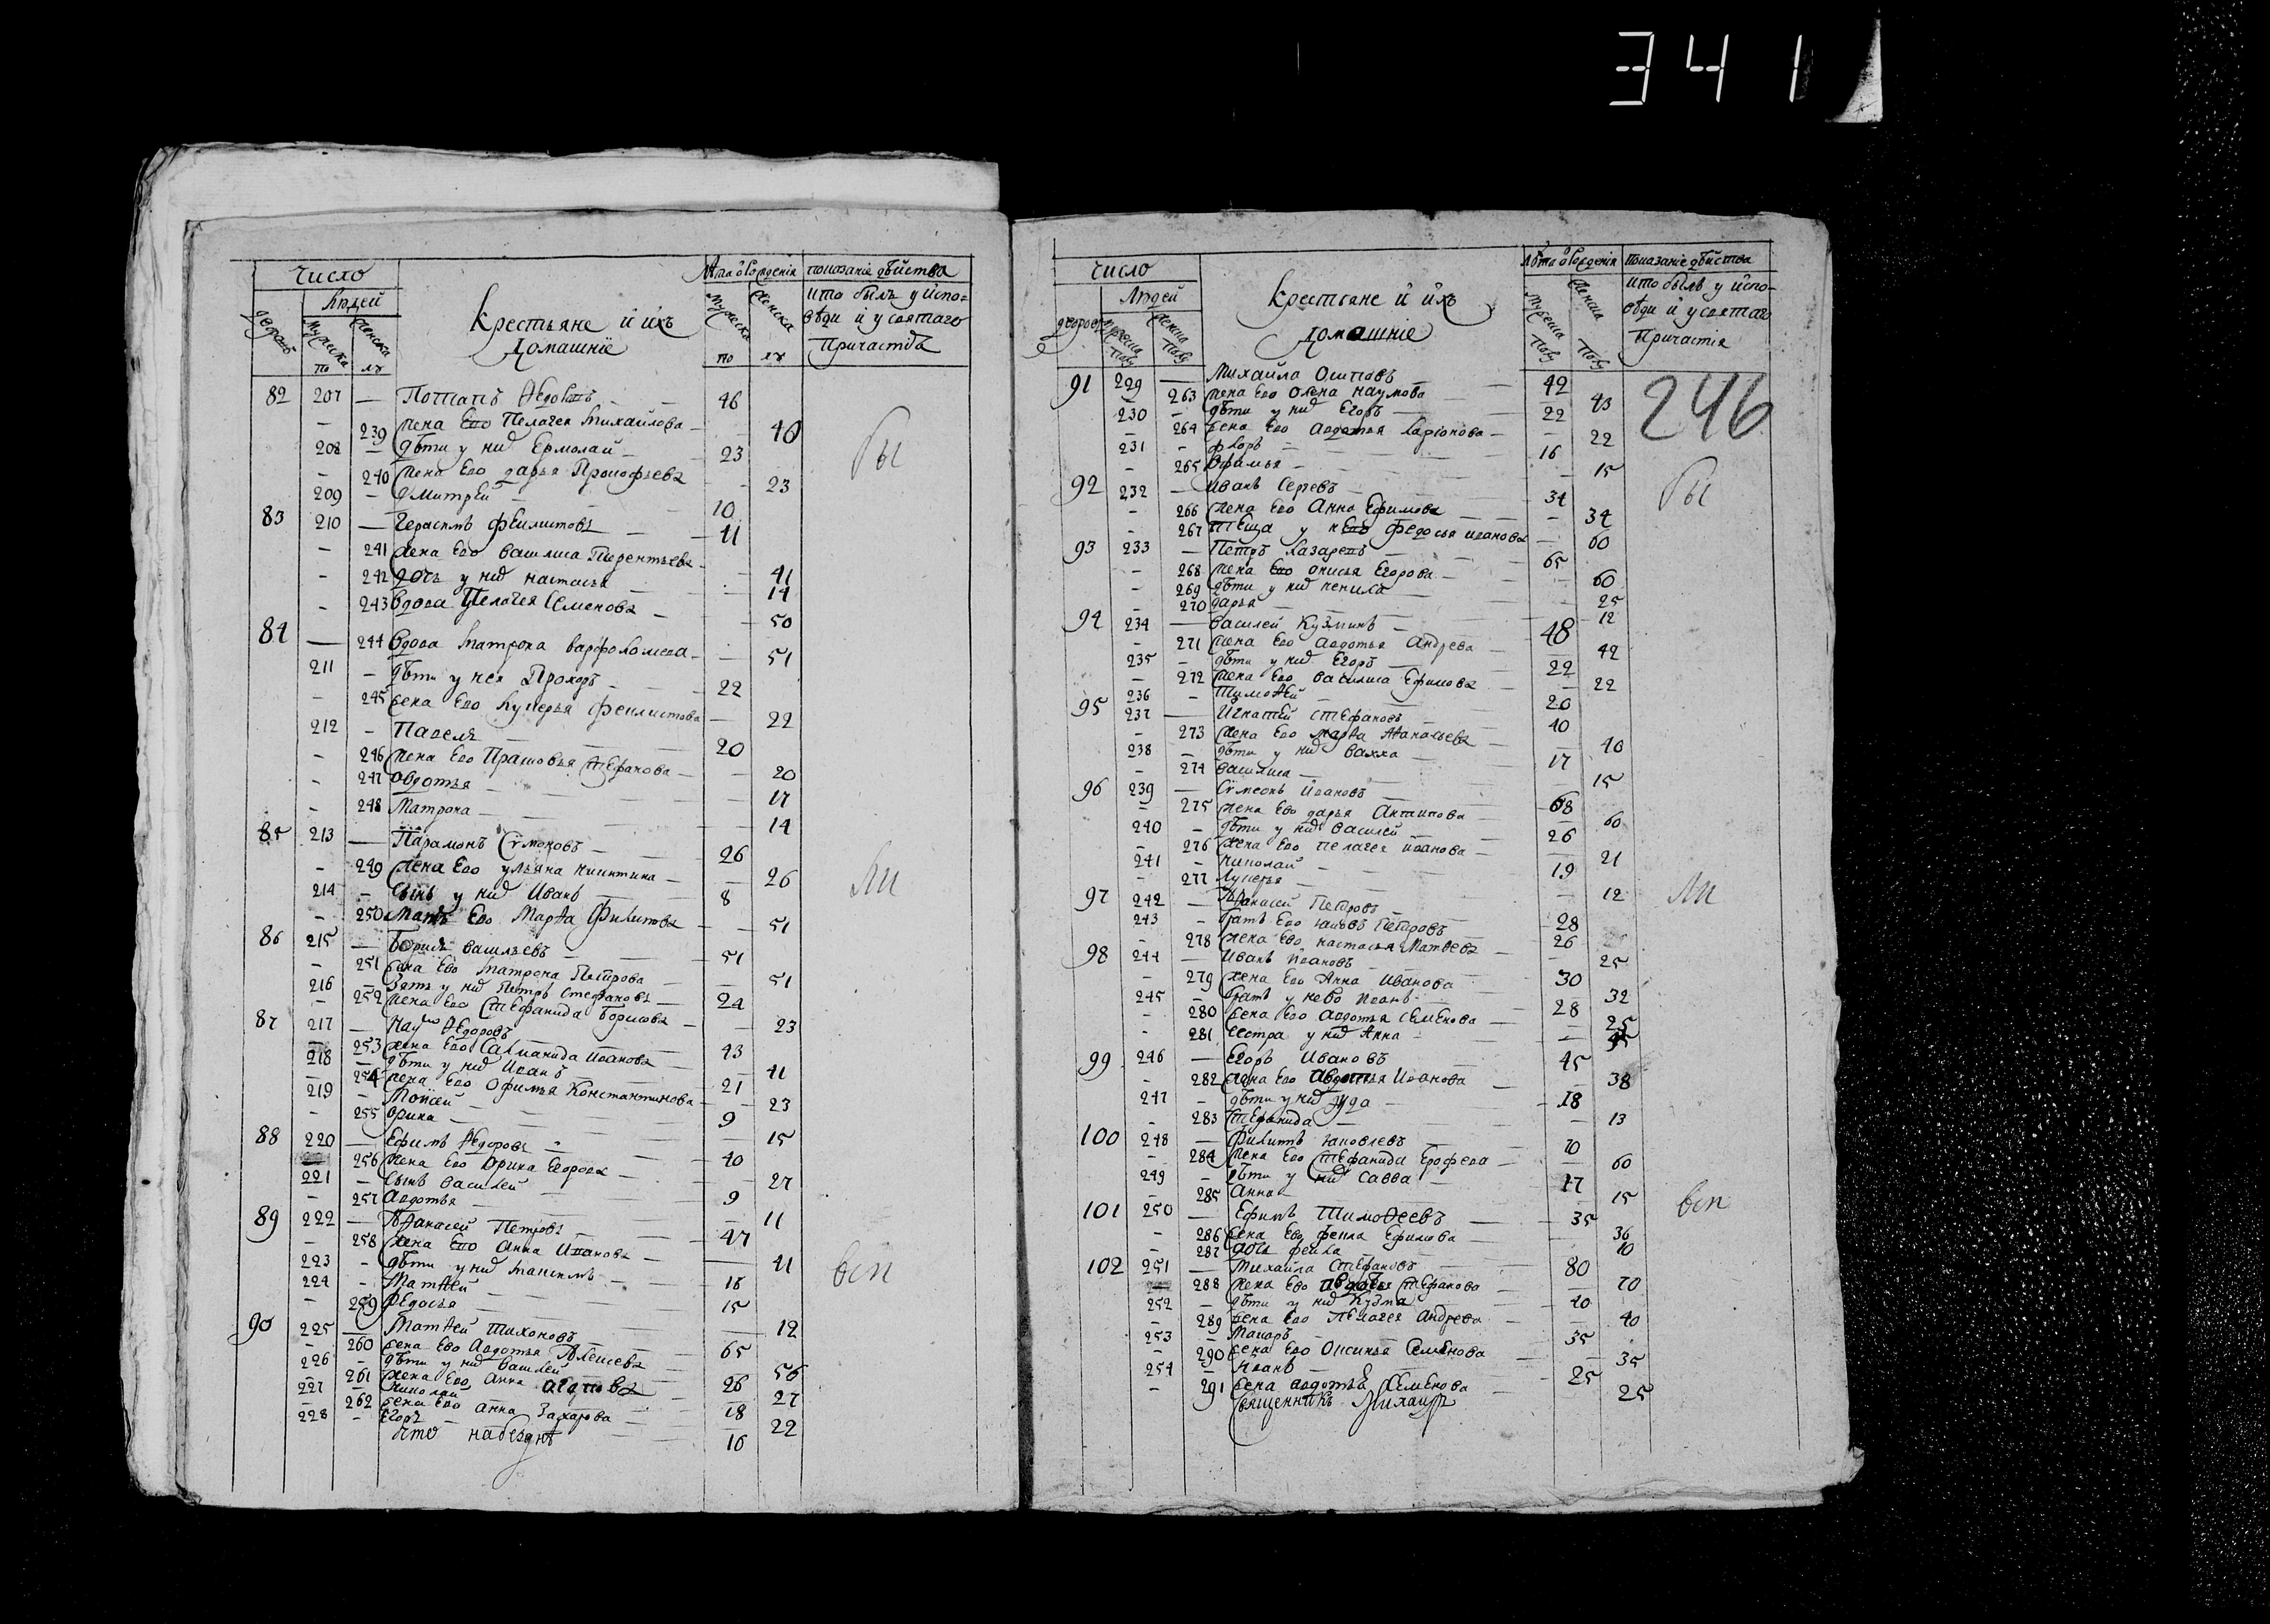 341
Число
Людей
Крестьяне и ихъ
домашнїе
показанїе дѣйства
кто былъ у испо-
вѣди и у святаго
Причастїѧ
82 207 — Потапъ Ѳедоровъ 46
239 жена Ево Пелагея Михайлова 40
208 дѣти у них Ермолай 23
240 жена Ево дарья Прокофьева 23
209 дмитрей 10
83 210 — Герасимъ 41
241 жена Ево василиса Терентьева 41
242 дочь у них настасья 14
243 вдова Пелагея Семенова 50
84 — 244 вдова Матрона варфоломеева 51
211 дѣти у нея Прохоръ 22
245 жена Ево лукерья феклистова 22
212 Павелъ 20
246 жена Ево Прасковья Стефанова 20
247 авдотья 17
248 Матрона 14
85 213 — Парамонъ Симоновъ 26
249 жена Ево ульяна никитина 26
214 сынъ у них Иванъ 8
250 мать Ево Марѳа Филипова 51
86 215 — Борисъ васильевъ 51
251 жена Ево Матрена Петрова 51
216 зять у них Петръ Стефановъ 24
252 жена Ево Стефанида Борисова 23
87 217 — Наумъ Ѳедоровъ 43
253 жена Ево Саломанида Иванова 41
218 дѣти у них Иванъ 21
254 жена Ево Офимья Константинова 23
219 Моисей 9
255 Орина 15
88 220 — Ефимъ Ѳедоровъ 40
256 жена Ево Орина Егорова 27
221 сынъ Василей 9
257 Авдотья 11
89 222 — Афанасей Петровъ 47
258 жена Ево Анна Иванова 41
223 дѣти у них Максимъ 18
224 Матѳей 15
259 Ѳедосья 12
90 225 — Матѳей Тихоновъ 65
260 жена Ево Авдотья Алексеева 56
226 дѣти у них василей 26
261 жена Ево Анна 27
227 Николай 18
262 жена Ево Анна Захарова 22
228 Егоръ 16
бы
ли
всѣ
Число
Людей
Крестьяне и ихъ
домашнїе
лѣта о рожденїя
показанїе дѣйства
кто былъ у испо-
вѣди и у святаго
Причастїя
246
91 229 — Михайла Осиповъ 42
263 жена Ево олена наумова 43
230 дѣти у них Егоръ 22
264 жена Ево Авдотья Ларїонова 22
231 флоръ 16
265 Офимья 15
92 232 — иванъ Сергевъ 34
266 жена Ево Анна Ефимова 34
267 теща у нево Федосья иванова 60
93 233 — Петръ Лазаревъ 65
268 жена Ево анисья Егорова 60
269 дѣти у них 25
270 дарья 12
94 234 — василей Кузминъ 48
271 жена Ево Авдотья Андреева 42
235 дѣти у них Егоръ 22
272 жена Ево василиса Ефимова 22
236 Тимоѳей 20
95 237 — Игнатей Стефановъ 40
273 жена Ево марѳа Аѳанасьева 40
238 дѣти у них вакха 17
274 василиса 15
96 239 — Симеонъ Ивановъ 68
275 жена Ево дарья Антипова 60
240 дѣти у них василей 26
276 жена Ево пелагея иванова 21
241 николай 19
277 Лукерья 12
97 242 — Афанасей Петровъ 28
243 братъ Ево яковъ Петровъ 26
278 жена Ево настасья Матвеева 25
98 244 — Иванъ Ивановъ 30
279 жена Ево Анна Иванова 32
245 братъ у нево Иванъ 28
280 жена Ево Авдотья Семенова 25
281 сестра у них Анна
99 246 — Егоръ Ивановъ 45
282 жена Ево Авдотья Иванова 38
247 дѣти у них 18
283 Стефанида 13
100 248 — Филипъ яковлевъ 70
284 жена Ево Стефанида Ерофева 60
249 дѣти у них Савва 17
285 Анна 15
101 250 — Ефимъ Тимоѳеевъ 35
286 жена Ево фекла Ефимова 36
287 дочь фекла 10
102 251 — Михайла Стефановъ 80
288 жена Ево Стефанова 70
252 дѣти у них Кузма 40
289 жена Ево Пелагея Андреева 40
253 Макаръ 35
290 жена Ево Оксинья Семенова 35
254 Иванъ 25
291 жена авдотья Семенова 25
Священникъ
бы
ли
всѣ